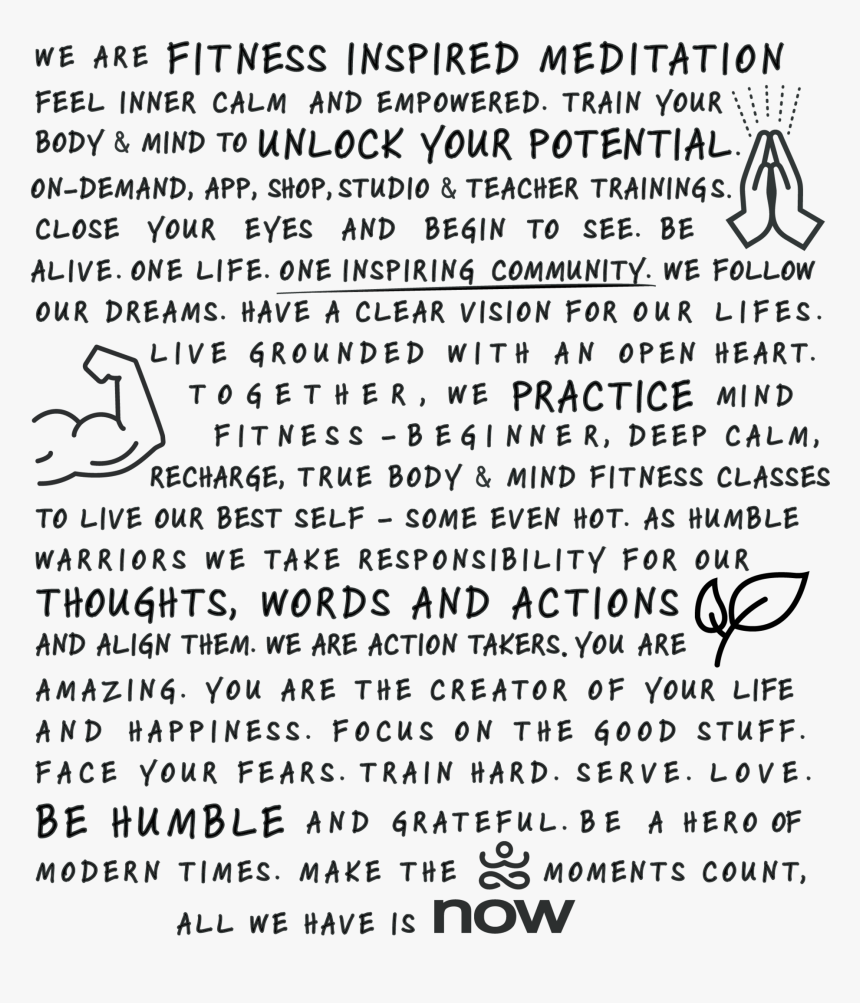 WE ARE FITNESS INSPIRED MEDITATION
FEEL INNER CALM AND EMPOWERED. TRAIN YOUR
BODY & MIND TO UNLOCK YOUR POTENTIAL.
ON-DEMAND, APP, SHOP, STUDIO & TEACHER TRAININGS.
CLOSE YOUR EYES AND BEGIN TO SEE. BE
ALIVE. ONE LIFE. ONE INSPIRING COMMUNITY. WE FOLLOW
OUR DREAMS. HAVE A CLEAR VISION FOR OUR LIFES.
LIVE GROUNDED WITH AN OPEN HEART.
TOGETHER, WE PRACTICE MIND
FITNESS - BEGINNER, DEEP CALM,
RECHARGE, TRUE BODY & MIND FITNESS CLASSES
TO LIVE OUR BEST SELF - SOME EVEN HOT. AS HUMBLE
WARRIORS WE TAKE RESPONSIBILITY FOR OUR
THOUGHTS, WORDS AND ACTIONS
AND ALIGN THEM. WE ARE ACTION TAKERS. YOU ARE
AMAZING. YOU ARE THE CREATOR OF YOUR LIFE
AND HAPPINESS. FOCUS ON THE GOOD STUFF.
FACE YOUR FEARS. TRAIN HARD. SERVE. LOVE.
BE HUMBLE AND GRATEFUL. BE A HERO OF
MODERN TIMES. MAKE THE MOMENTS COUNT,
ALL WE HAVE IS now